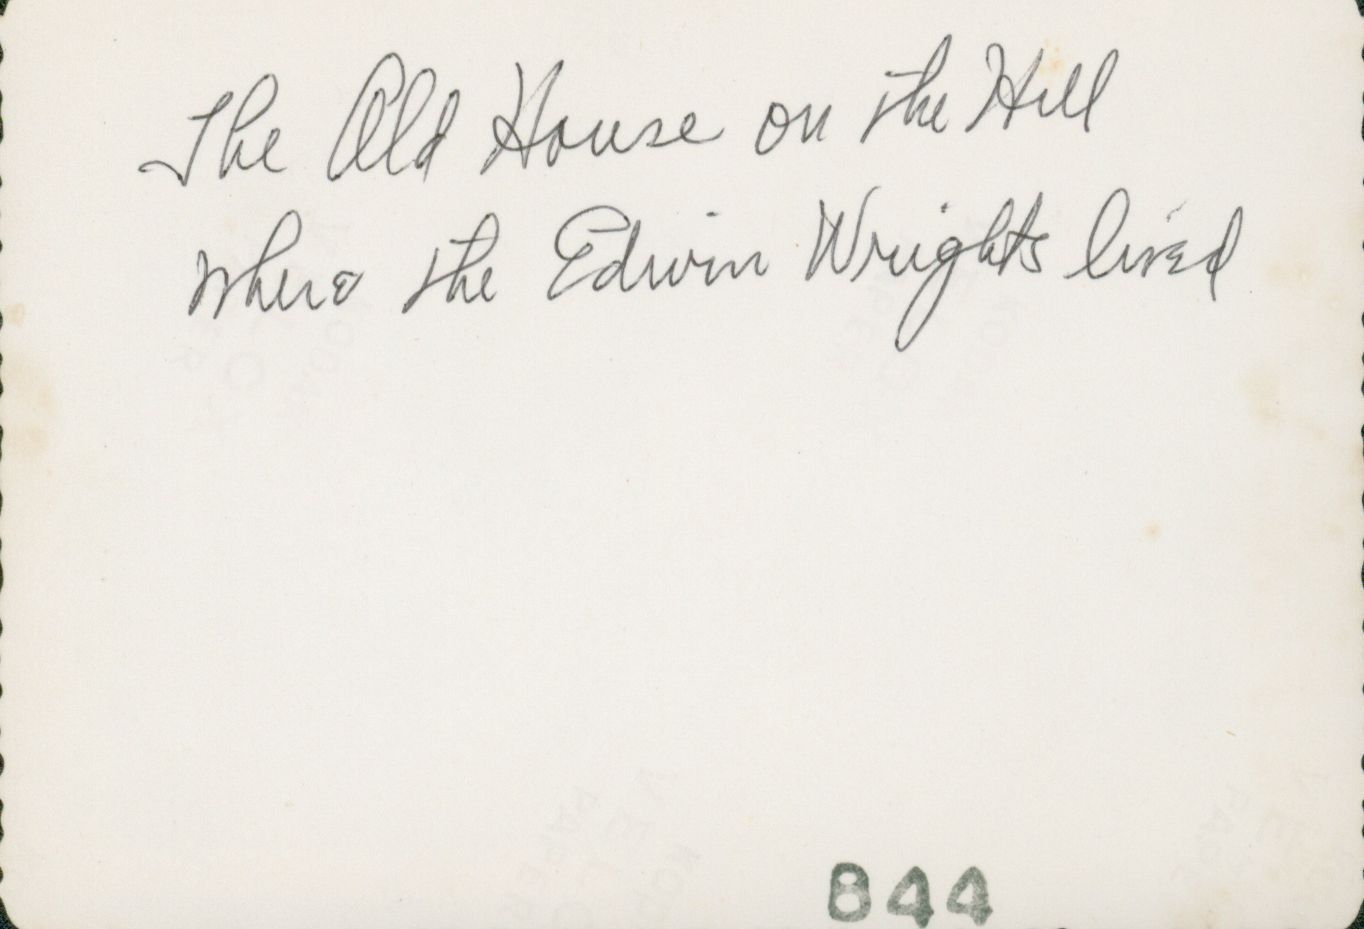 The Old House on the Hill
where the Edwin Wrights lived
844